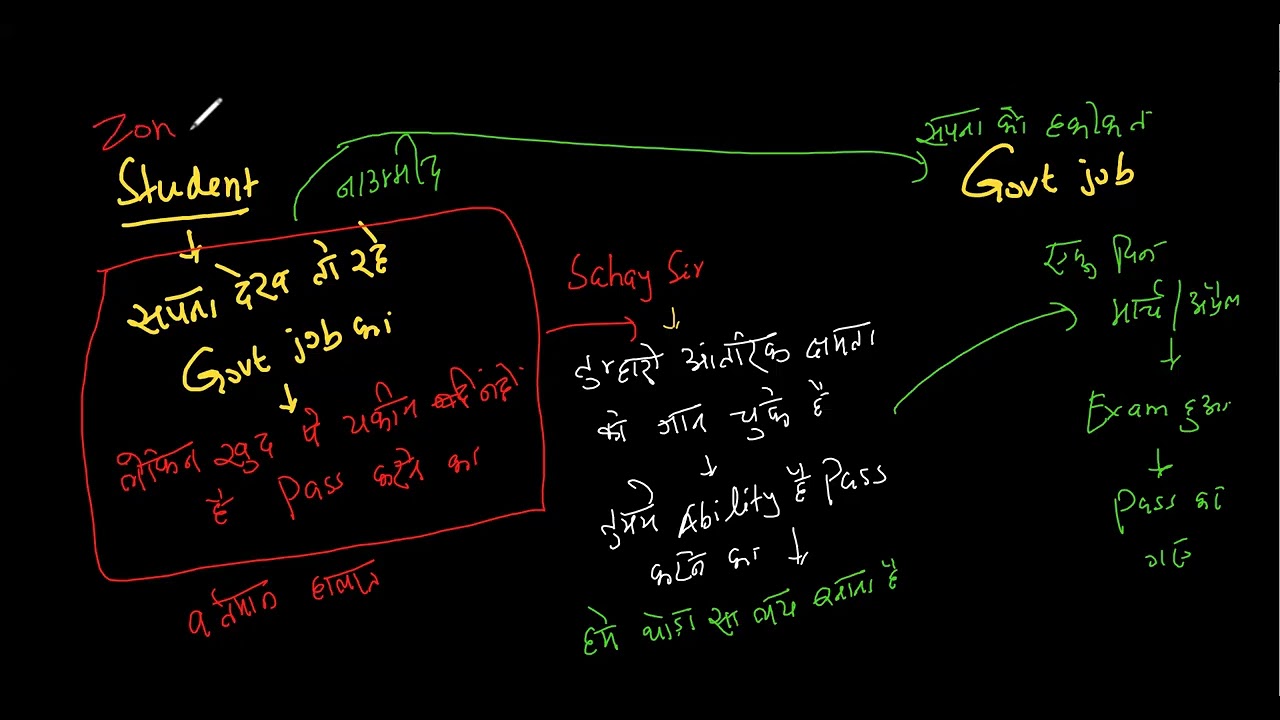 Zon
Student
सपना देख तो रहे
Govt job का
लेकिन खुद पे यकीन नहीं
है Pass करने का
वर्तमान हालात
नाउम्मीद
Sahay Sir
तुम्हारी आंतरिक क्षमता
को जान चुके हैं
तुममें Ability है Pass
करने का
हमें थोड़ा सा बनाना है
सपना को हकीकत
Govt job
एक दिन
मार्च / अप्रैल
Exam हुआ
Pass कर
गए